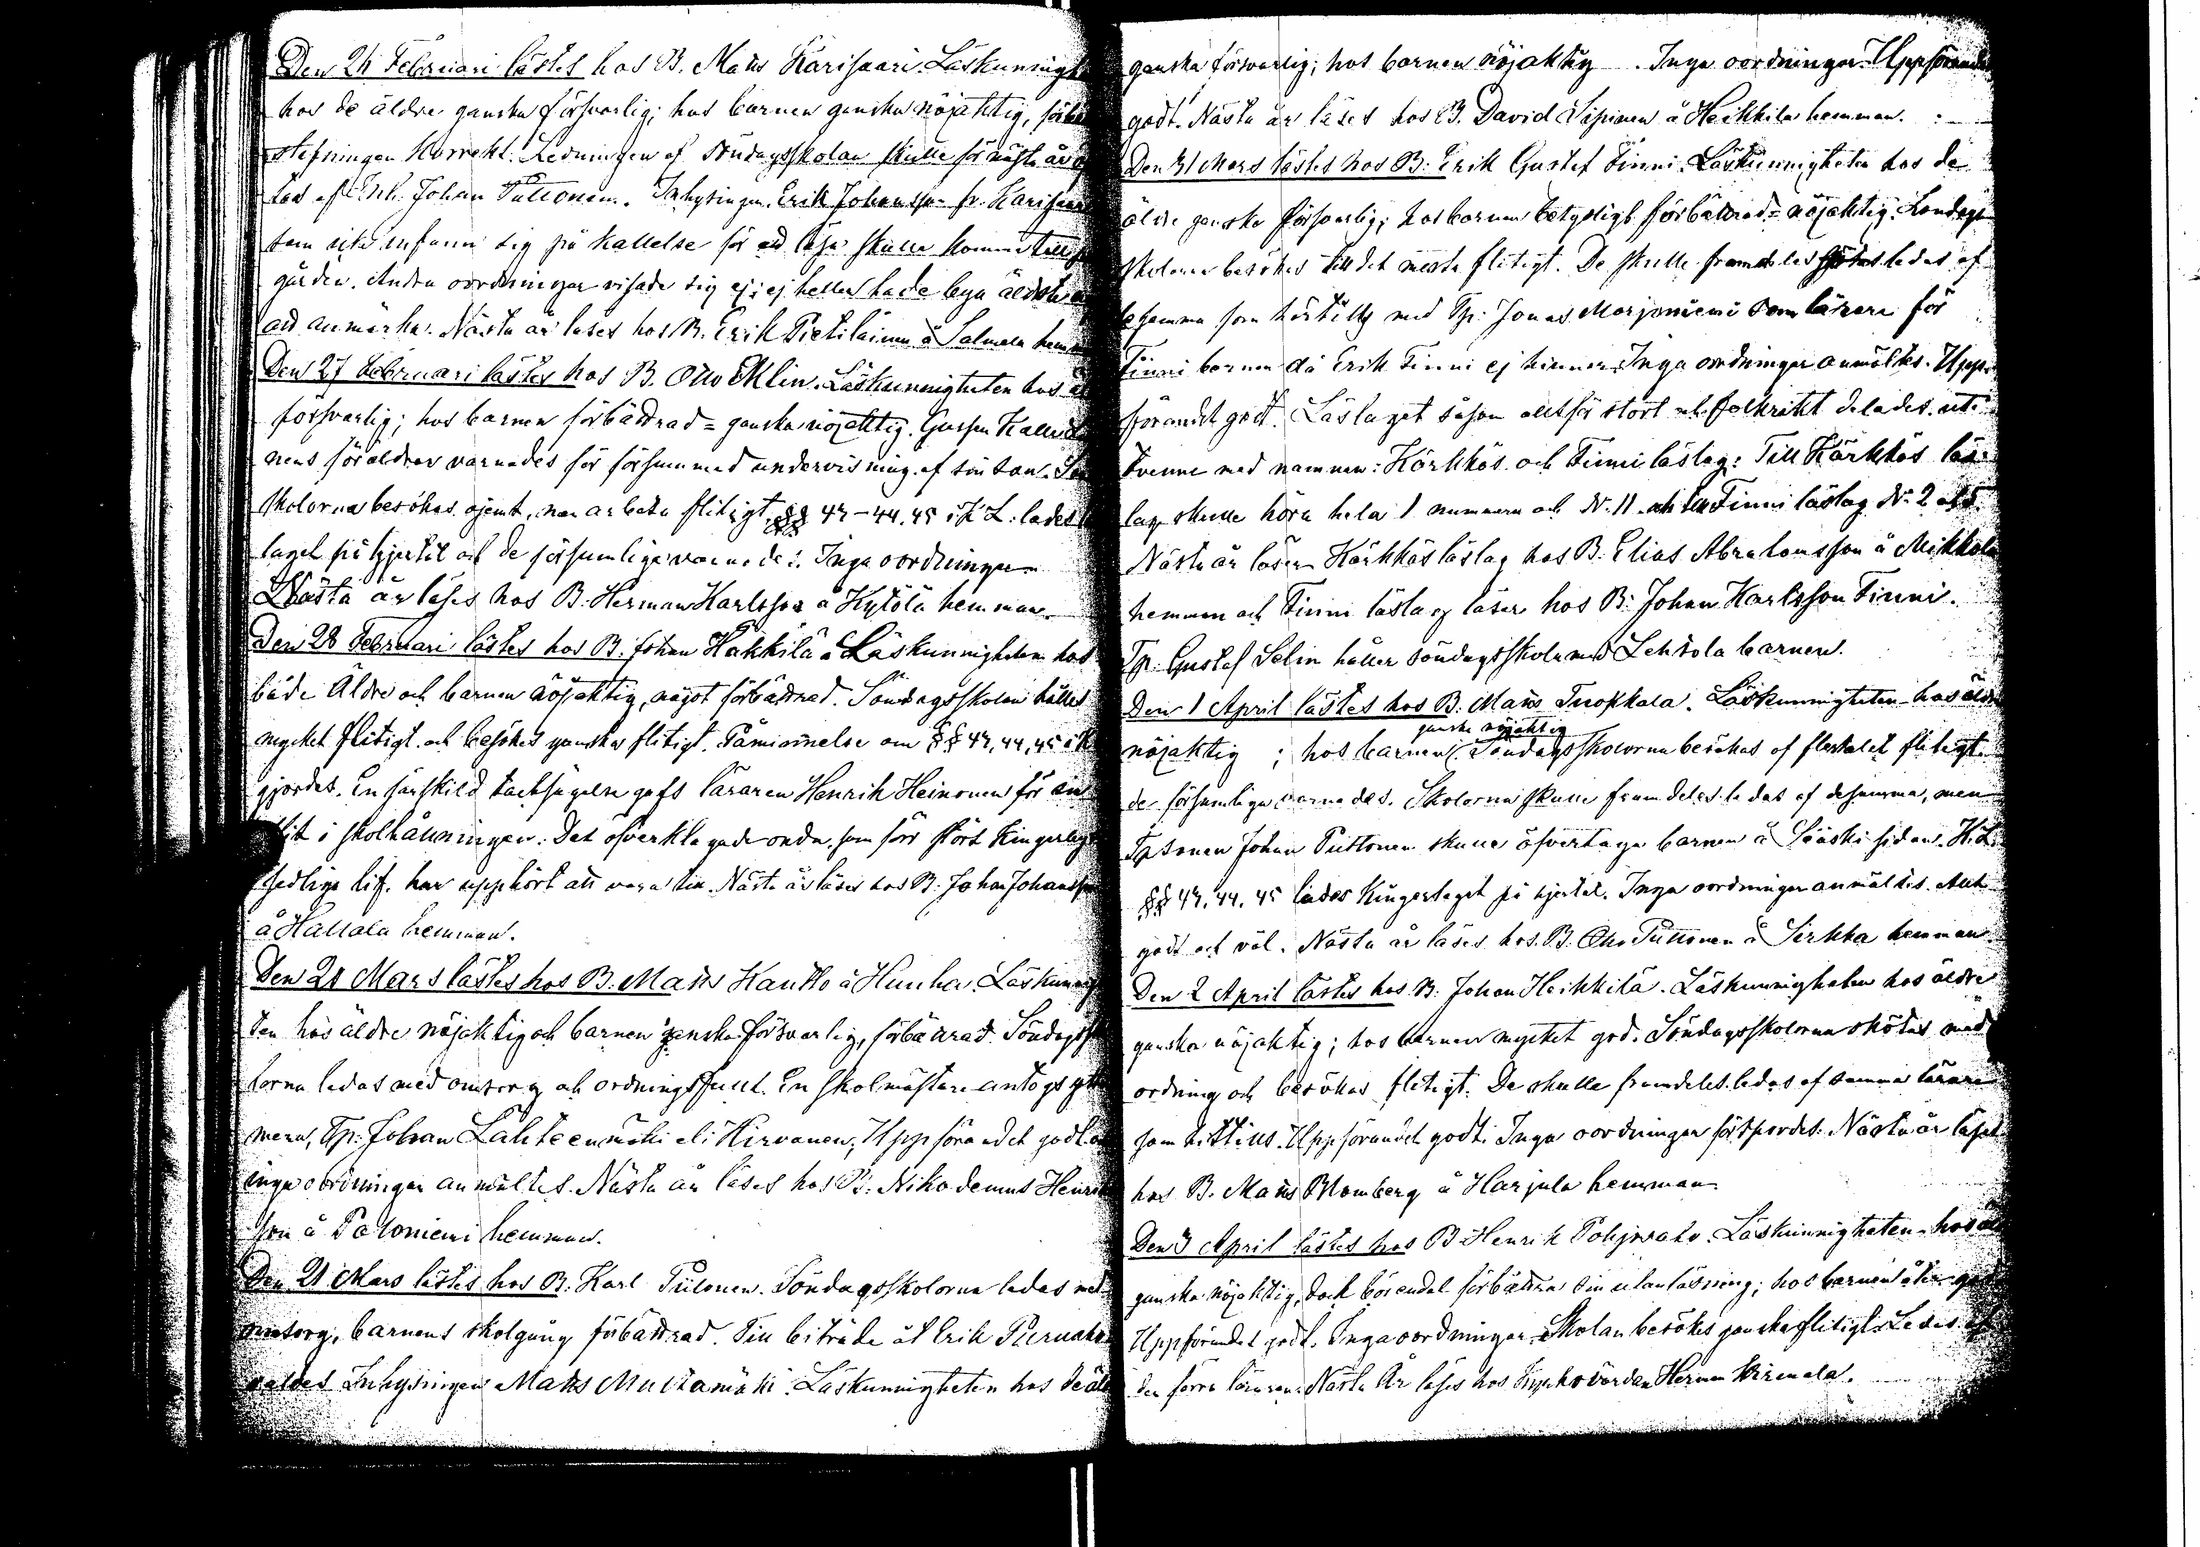 Den 24 Februari lästes hos B. Matts Karisaari. Läskunnigh
hos de äldre ganska försvarlig; hos barnen ganska nöjaktig, förbä
stafningen korrekt. Ledningen af söndagsskolan skulle för nästa år
tas af Enl. Johan Puttonen. Inhysingen Erik Johansson fr. Karisaari
som icke infann sig på kallelse för att läsa skulle komma till p
gården. Andra oordningar visade sig ej; ej heller hade bya äldste
att anmärka. Nästa år läses hos B. Erik Pietiläinen å Salmela hemm
Den 27 Februari lästes hos B. Otto Eklin. Läskunnigheten hos äl
försvarlig; hos barnen förbättrad = ganska nöjaktig. Gossen Kalle
nens föräldrar varnades för försummad undervisning af sin son. Sö
skolorna besökas ojemt, man arbeta flitigt. §§ 43-44.45 i K L. lades
laget på hjertat och de försumliga varnades. Inga oordningar
Nästa år läses hos B. Herman Karlsson å Kytölä hemman.
Den 28 Februari lästes hos B. Johan Häkkilä å Läskunnigheten hos
både Äldre och barnen nöjaktig, något förbättrad. Söndagsskolan hålles
mycket flitigt och besökes ganska flitigt. Påminnelse om §§ 43, 44, 45 i K
gjordes. En särskild tacksägelse gafs läraren Henrik Heinonen för sin
flit i skolhållningen. Det öfverklagade onda, som förr stört Kingerlag
sedliga lif, har upphört att vara till. Nästa år läses hos B. Johan Johansson
å Hallala hemman.
Den 20 Mars lästes hos B. Matts Hautto å Hunha. Läskunnig
ten hos äldre nöjaktig och barnen ganska försvarlig, förbättrad. Söndagssk
lorna ledas med omsorg och ordningsfullt. En skolmästare antogs
mera, Tp. Johan Lahteenmäki eli Hirvonen; Uppförandet godt o
inga oordningar anmältes. Nästa år läses hos B. Nikodemus Henrik
son å Paloniemi hemman.
Den 21 Mars lästes hos B. Karl Piilonen. Söndagsskolorna ledas med
omsorg, barnens skolgång förbättrad. Till biträde åt Erik
valdes Inhysingen Matts Mustamäki. Läskunnigheten hos de äl
ganska försvarlig; hos barnen nöjaktig. Inga oordningar. Uppförandet
godt. Nästa år läses hos B. David Sipinen å Heikkila hemman.
Den 31 Mars lästes hos B. Erik Gustaf Finni. Läskunnigheten hos de
äldre ganska försvarlig; hos barnen betydligt förbättrad = nöjaktig. Söndags
skolorna besökes till det mesta flitigt. De skulle framdeles ledas af
desamma som härtills med Tp. Jonas Marjoniemi som lärare för
Finni barnen då Erik Finni ej hinner. Inga oordningar anmältes. Upp-
förandet godt. Läslaget såsom alltför stort och folkrikt delades uti
tvenne med namnen: Kärkkäs och Finni läslag: Till Kärkkäs läs-
lag skulle höra hela 1 nummern och N. 11 och till Finni läslag N. 2
Nästa år läser Kärkkäs läslag hos B. Elias Abrahamsson å Mikkola
hemman och Finni läslag läser hos B. Johan Karlsson Finni.
Tp. Gustaf Selin håller söndagsskola med Lehtola barnen.
Den 1 April lästes hos B. Matts Tuokkala. Läskunnigheten hos äldre
nöjaktig; hos barnen ganska nöjaktig. Söndagsskolorna besökas af flertalet flitigt
de försumliga varnades. Skolorna skulle framdeles ledas af desamma, men
Tpsonen Johan Puttonen skulle öfvertaga barnen å Sääski sidan. K. L.
§§ 43. 44. 45 lades Kingerlaget på hjertat. Inga oordningar anmältes. Allt
godt och väl. Nästa år läses hos B. Otto Puttonen å Sirkka hemman.
Den 2 April lästes hos B. Johan Heikkilä. Läskunnigheten hos äldre
ganska nöjaktig; hos barnen mycket god. Söndagsskolorna skötas med
ordning och besökas flitigt. De skulle framdeles ledas af samma lärare
som hittills. Uppförandet godt. Inga oordningar förspordes. Nästa år läses
hos B. Matts Blomberg å Harjula hemman.
Den 3 April lästes hos B Henrik Pohjvahv. Läskunnigheten hos
ganska nöjaktig, dock bör endel förbättra sin utanläsning; hos barnen åter god
Uppförandet godt. Inga oordningar. Skolan besökes ganska flitigt. Ledes af
den förra läraren. Nästa År läses hos Kyrkovärden Herman